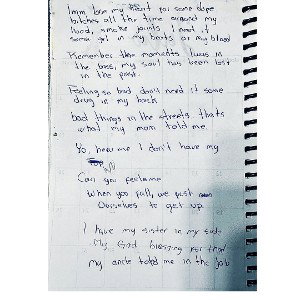 born my for some dope
bitches all the time around my
hood, smoke joints I need it
some girl in my boots or my blood
Remember the moments I was in
the bus, my soul has been lost
in the past.
Feeling so bad, don't need it some
drug in my back
bad things in the streets. thats
what my mom told me.
Yo, hear me I don't have my
all
Can you perfome
When you fall, we must
Ourselves to get up.
I have my sister in my side
My God blessing for that
my uncle told me in the job